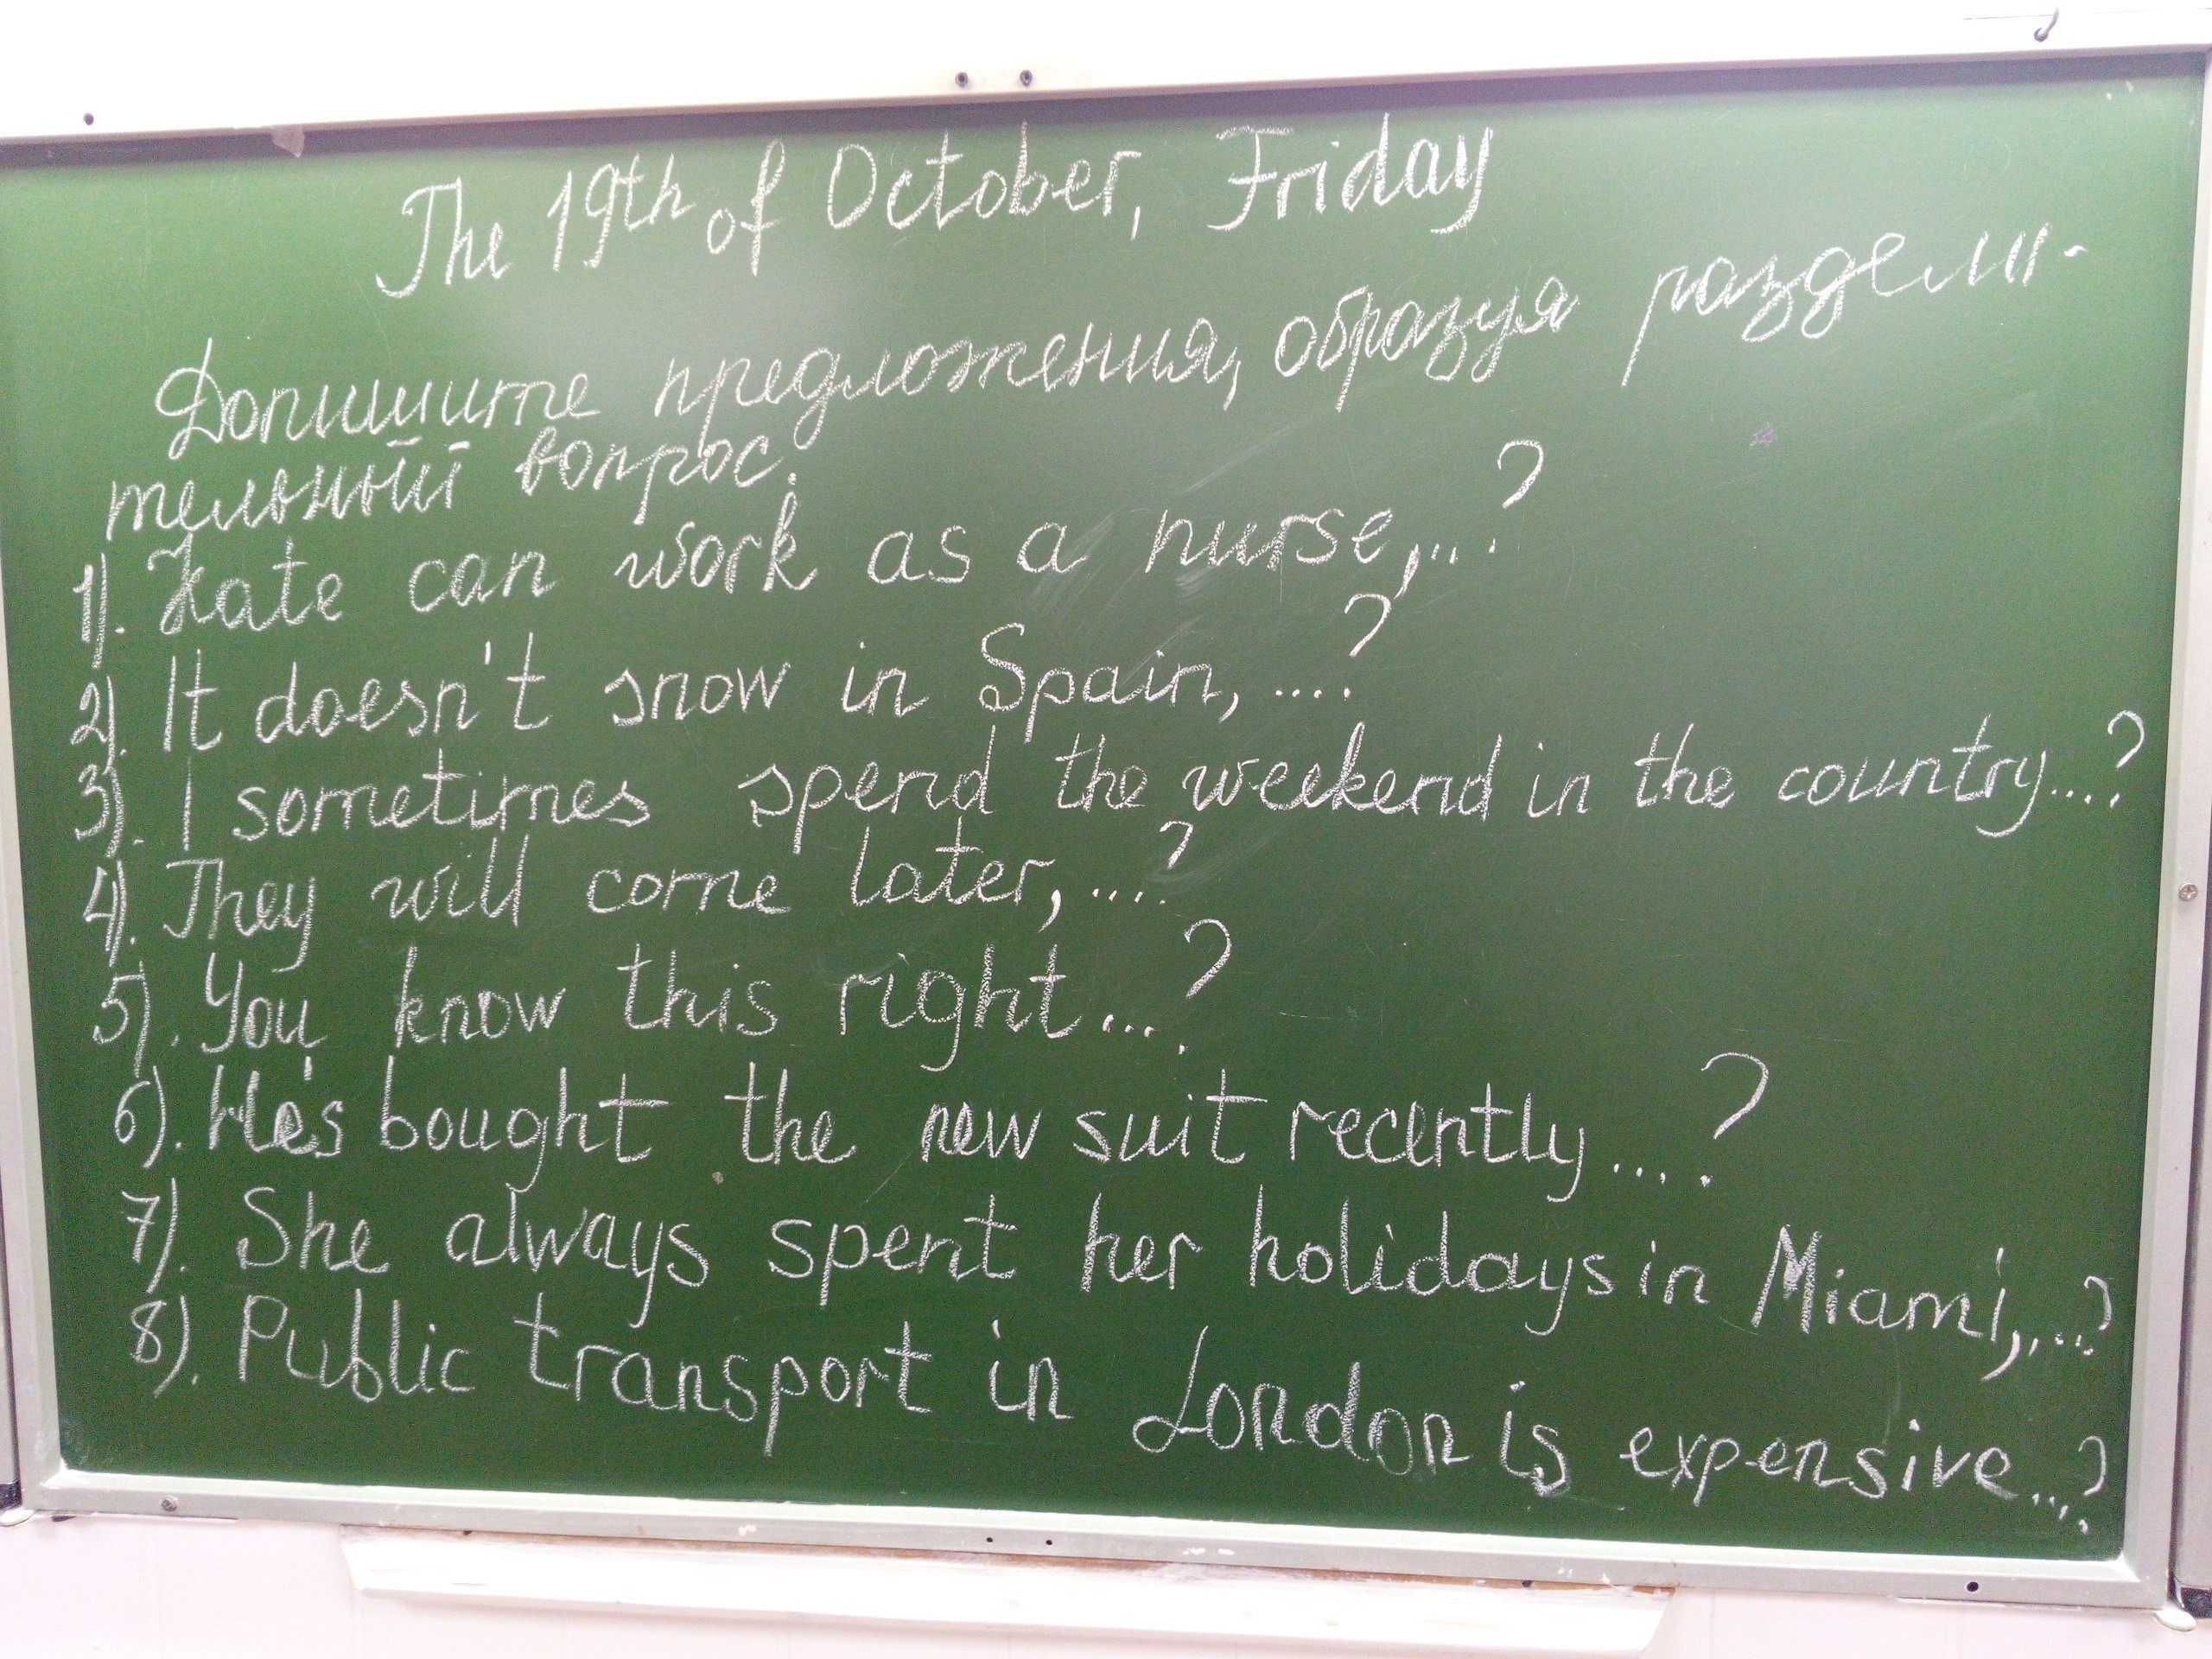 The 19th of October, Friday
Допишите предложения, образуя раздели-
тельный вопрос.
1). Kate can work as a nurse,...?
2). It doesn't snow in Spain,....?
3). I sometimes spend the weekend in the country....?
4). They will come later,....?
5). You know this right...?
6). He's bought the new suit recently....?
7). She always spent her holidays in Miami,...?
8). Public transport in London is expensive...?